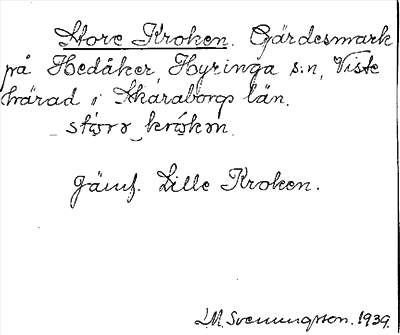 Store Kroken. Gärdesmark
på Hedåker, Hyringa s:n, Viste
härad i Skaraborgs län.
Jämf. Lille Kroken.
Svenungsson. 1939.